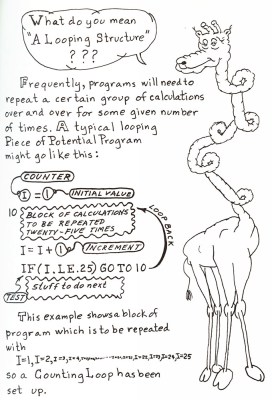 What do you mean
"A Looping Structure"
? ? ?
Frequently, programs will need to
repeat a certain group of calculations
over and over for some given number
of times. A typical looping
Piece of Potential Program
might go like this:
COUNTER
I = 1 INITIAL VALUE
10 BLOCK OF CALCULATIONS
TO BE REPEATED
TWENTY-FIVE TIMES
LOOP BACK
I = I + 1 INCREMENT
IF(I.LE.25) GO TO 10
stuff to do next
TEST
This example shows a block of
program which is to be repeated
with
I=1, I=2, I=3, I=4, I=23, I=24, I=25
so a Counting Loop has been
set up.